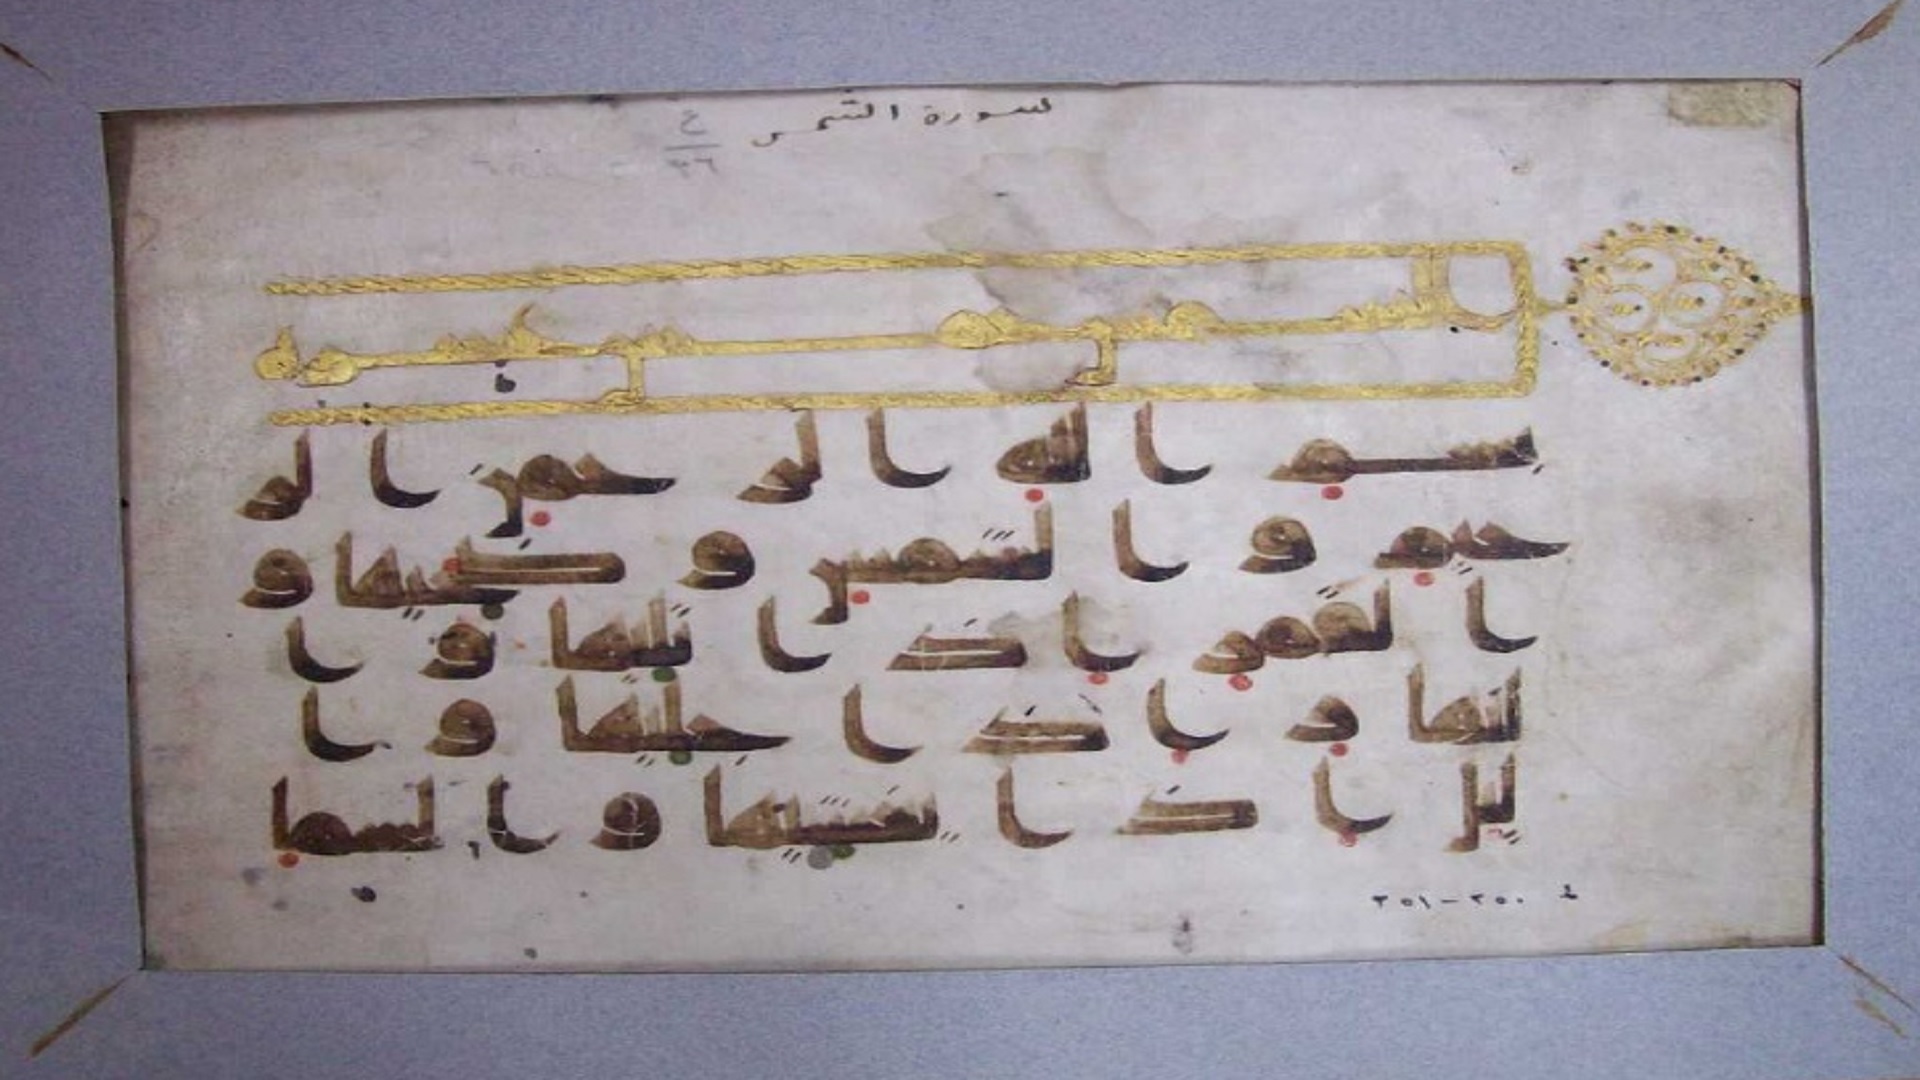 سورة الشمس
بسم الله الرحمن الر
حيم والشمس وضحيها و
القمر اذا تليها وا
لنهار اذا جليها وا
ليل اذا يغشيها والسما